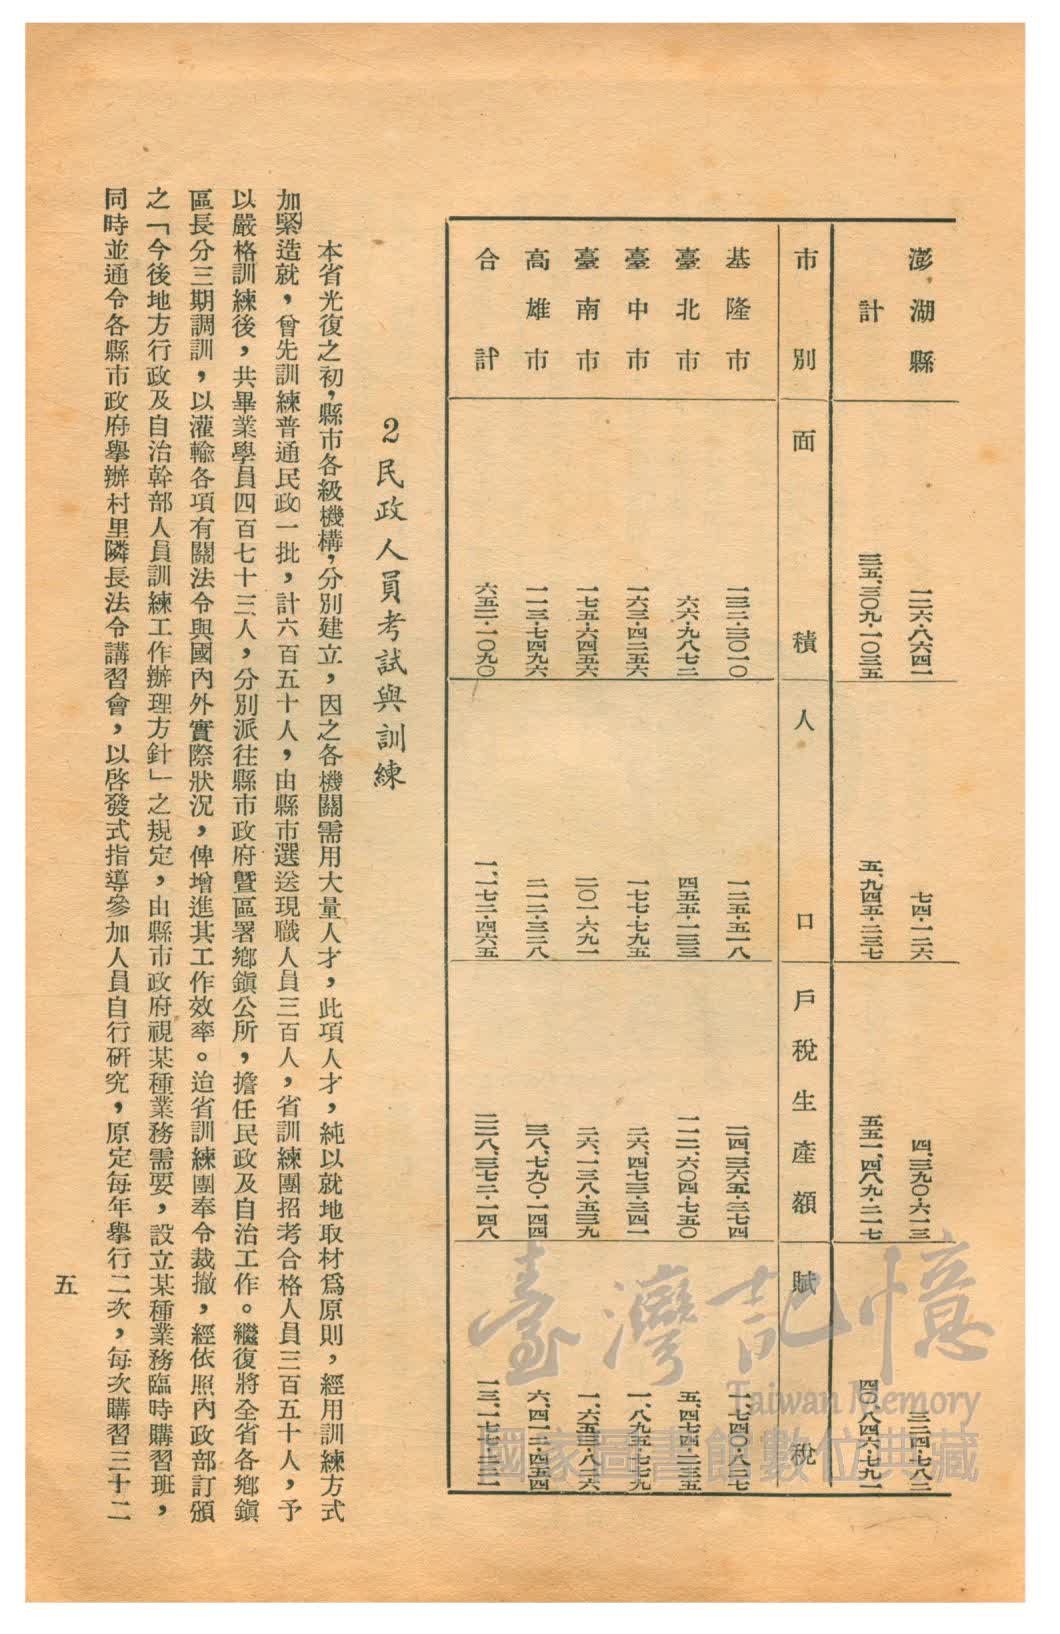 澎湖縣 一二六·八六四一 七四·一二六 四、三九〇·六一三 三二四·七八二
計 三五、三〇九·一〇三五 五、九四五·二三七 五五一、四八九·二一七 四〇、八四六·七九一
市別 面積 人口 戶稅生產額 賦稅
基隆市 一三二·三〇一〇 一二五·五一八 二四、三六五·三七四 一、七四〇·八二七
臺北市 六六·九八七二 四五五·一三三 一一二、六〇四·七五〇 五、四七四·二三五
臺中市 一六三·四二五六 一七七·七九五 二六、四七三·三四一 一、八九五·七七九
臺南市 一七五·六四五六 二〇一·六九一 二六、一三八·五三九 一、六五三·八二六
高雄市 一一三·七四九六 二一二·三二八 三八、七九〇·一四四 六、四一三·四五四
合計 六五二·一〇九〇 一、一七二·四六五 二二八、三七二·一四八 一三、一七七·一二一
2民政人員考試與訓練
本省光復之初，縣市各級機構，分別建立，因之各機關需用大量人才，此項人才，純以就地取材爲原則，經用訓練方式
加緊造就，曾先訓練普通民政一批，計六百五十人，由縣市選送現職人員三百人，省訓練團招考合格人員三百五十人，予
以嚴格訓練後，共畢業學員四百七十三人，分別派往縣市政府暨區署鄉鎭公所，擔任民政及自治工作。繼復將全省各鄉鎭
區長分三期調訓，以灌輸各項有關法令與國內外實際狀況，俾增進其工作效率。迨省訓練團奉令裁撤，經依照內政部訂頒
之「今後地方行政及自治幹部人員訓練工作辦理方針」之規定，由縣市政府視某種業務需要，設立某種業務臨時購習班，
同時並通令各縣市政府舉辦村里隣長法令講習會，以啓發式指導參加人員自行研究，原定每年舉行二次，每次購習三十二
五
臺灣記憶
Taiwan Memory
國家圖書館數位典藏